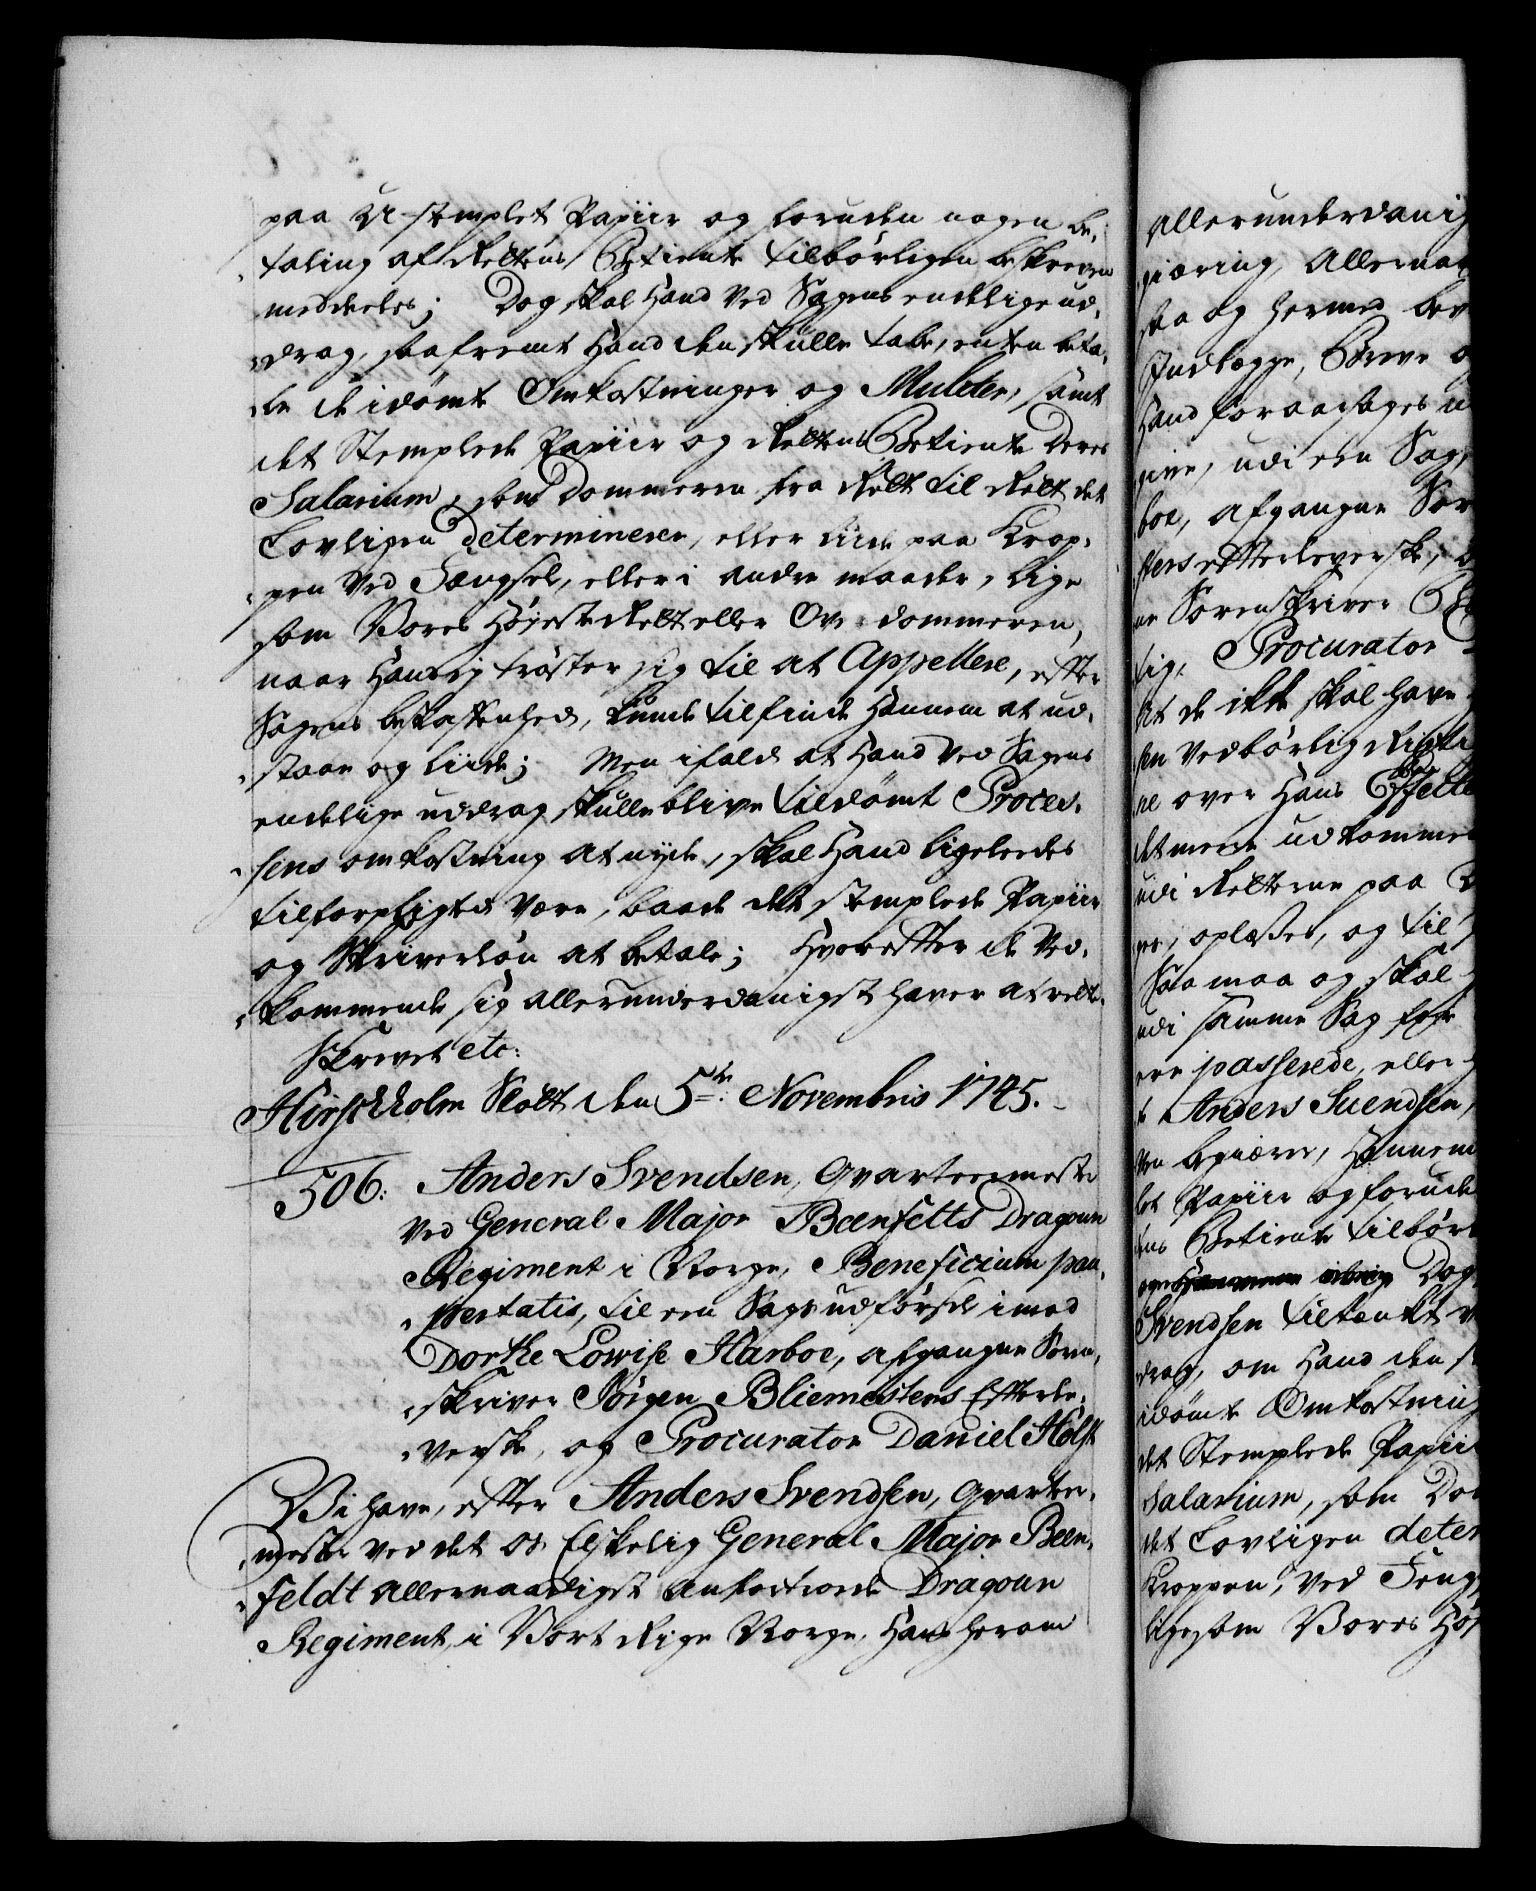 paa U-stemplet Papiir og foruden nogen be,
taling af Rettens Betiente tilbørligen beskreven
meddeeles; Dog skal Hand ved Sagens endelige ud,
drag, saafremt Hand den skulle tabe, enten beta,
le de idømte Omkostninger og Mulcter, samt
det Stemplede Papiir og Rettens Betiente deres
Salarium, som Dommeren fra Rett til Rett det
Lovligen determinerer, eller liide paa Krop,
pen ved Fængsel, eller i andre maader, lige
som Vores Høyeste Rett eller Over dommeren,
naar Hand ej trøster sig til at Appellere, efter
Sagens beskaffenhed, kunde tilfinde Hannem at ud,
staae og liide; Men ifald at Hand ved Sagens
endelige uddrag skulle blive tildømt Proces,
sens omkostning at nyde, skal Hand ligeleedes
tilforpligtet være, baade det stemplede Papiir
og Skriverløn at betale; Hvorefter de Ved,
kommende sig allerunderdanigst haver at rette.
Skrevet etc:
Hirschholm Slott den 5te Novembris 1745.
506. Anders Svendsen, Qvarteermester
ved General Major Beenfelts Dragoun
Regiment i Norge, Beneficium pau,
pertatis, til een Sags udførsel imod
Dorthe Lowise Harboe, afgangne Soren,
skriver Jørgen Bliemesters Efterle,
verske, og Procurator Daniel Holst
Vi have, efter Anders Svendsen, Qvarteer,
mester ved det Os Elskelig General Major Been,
feldt allernaadigst anfortroede Dragoun
Regiment, i Vort Rige Norge, Hans herom
allerunderdanig
giæring, Allernaa
saa og hermed bev
Indlægge, Breve o
Hand foraarsages
give, udi een Sag,
boe, afgangne Sor
sters efterleverske,
ne Sorenskriver
tig, Procurator
At de ikke skal have
sen vedbørlig Rigti
ne over Hans Effecte
det meere udkomme
udi Retterne paa
ger, oplæses, og til
Saa maa og skal
udi samme Sag for
ere passerede, eller
Anders Svendsen,
ten begiærer, Hannem
let Papiir og forude
ens Betiente tilbør
Dog
Svendsen tiltænkt
drag, om Hand den
idømte Omkostning
det Stemplede Papii
Salarium, som Do
det Lovligen deter
Kroppen, ved Feng
ligesom Vores Høy